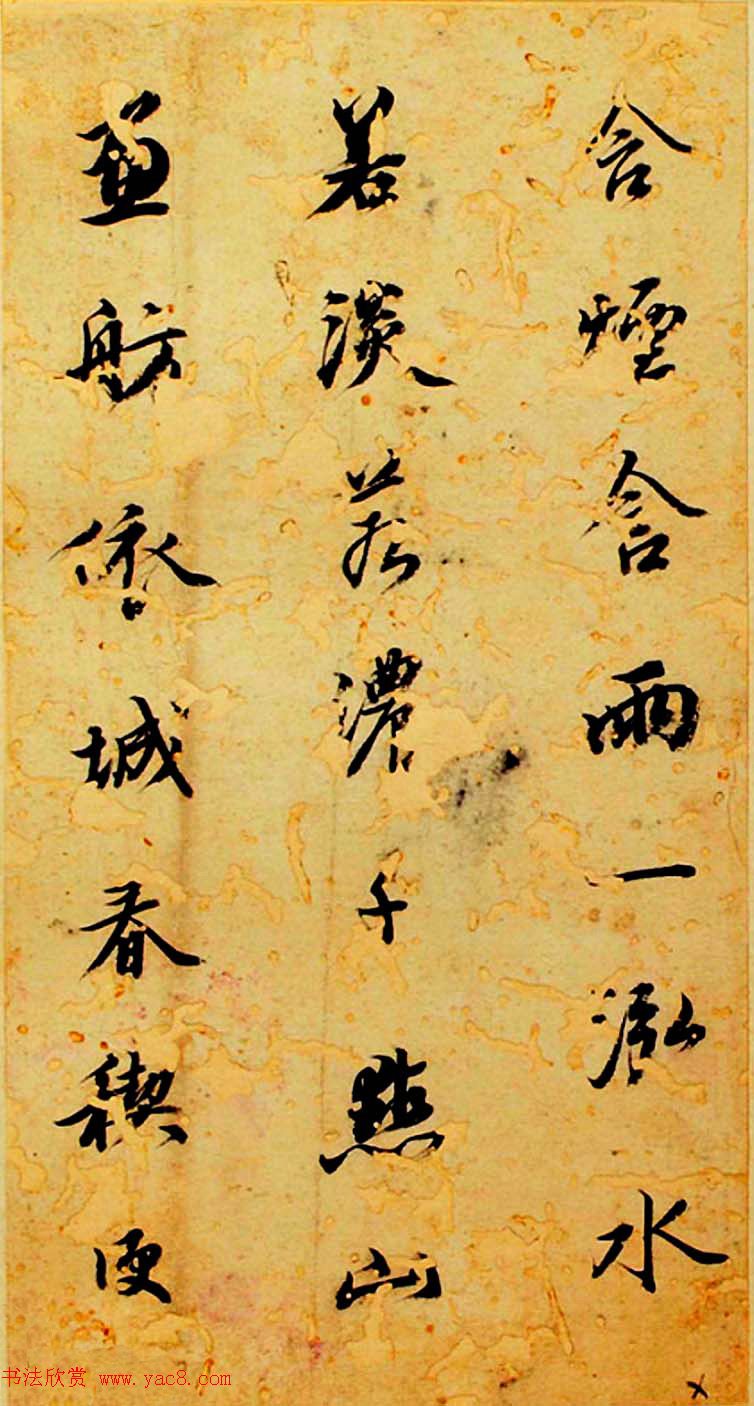 含煙含雨一泓水
若淡若濃千點山
畫舫依城春禊便
书法欣赏 www.yac8.com